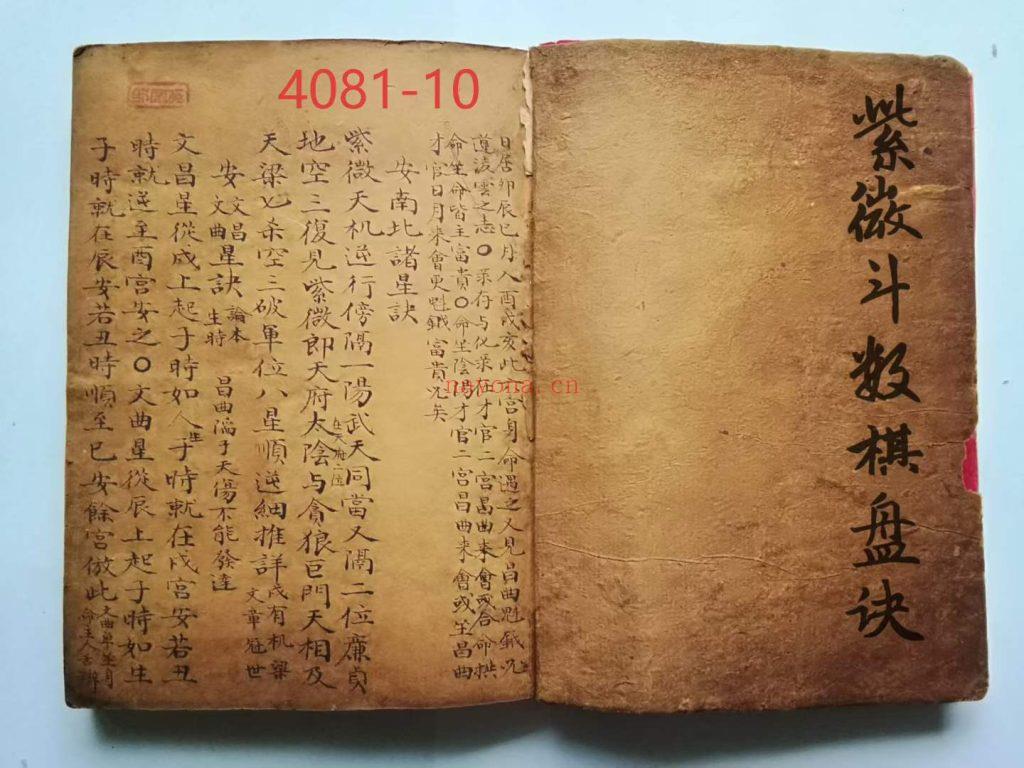 紫微斗数棋盘诀
4081-10
日居卯辰巳月人酉戌亥此宮身命遇之又見昌曲魁鉞
遂凌雲之志〇录存与化录在才官二宮昌曲来會或合命拱
命坐命皆主富貴〇命坐陰陽才官二宮昌曲来會或坐昌曲
才官日月来會更魁鉞富貴况矣
安南北諸星訣
紫微天机逆行傍隔一陽武天同當又隔二位廉貞
地空三復見紫微郎天府太陰与貪狼巨門天相及
在天府宫
天梁七杀空三破軍位八星順逆細推詳或有机梁文章冠世
安文昌文曲星訣 論本生時 昌曲陷于天傷不能發達
文昌星從戌上起子時如人生子時就在戌宮安若丑
時就逆至酉宮安之〇文曲星從辰上起子時如生
子時就在辰安若丑時順至巳安餘宮倣此
nayona.cn